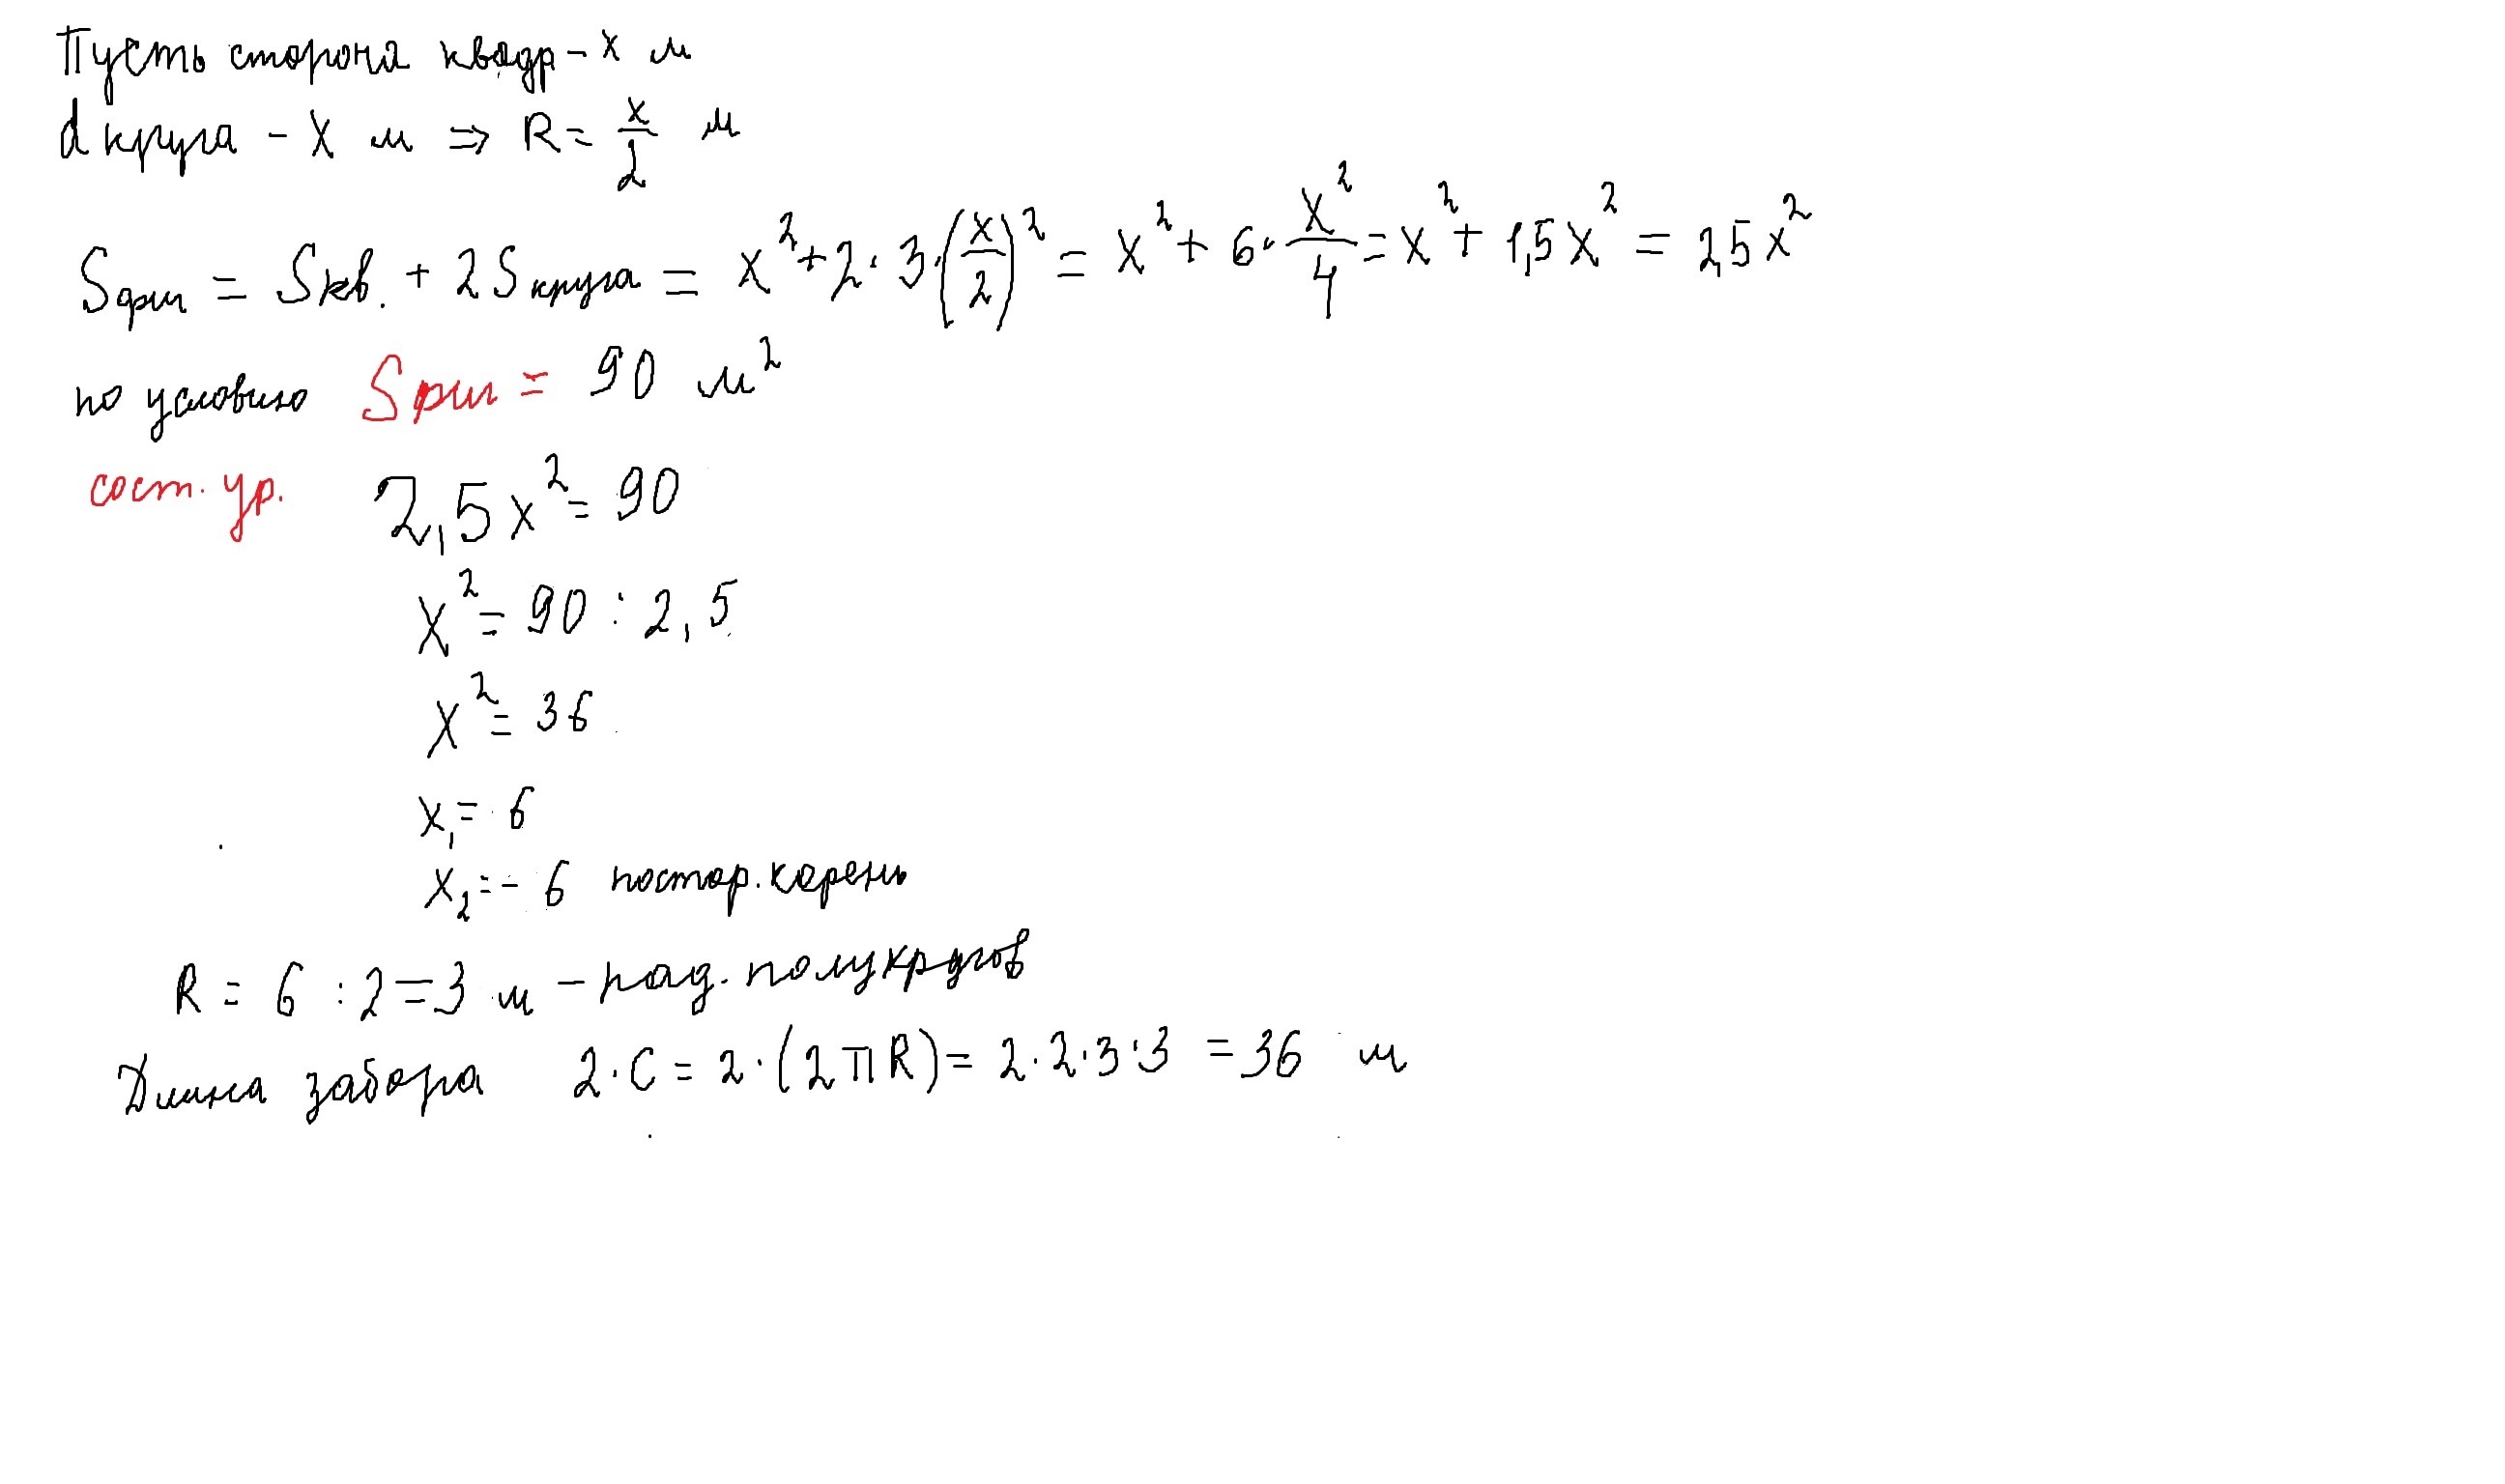 Пусть сторона квадр - x м
d круга - x м ⇒ R = x/2 м
Sфиг = Sкв. + 2Sкруга = x² + 2·3·(x/2)² = x² + 6·x²/4 = x² + 1,5x² = 2,5x²
по условию Sфиг = 90 м²
сост. ур. 2,5x² = 90
x² = 90 : 2,5
x² = 36
x₁ = 6
x₂ = -6 постор. корень
R = 6 : 2 = 3 м - рад. полукругов
Длина забора 2·C = 2·(2πR) = 2·2·3·3 = 36 м